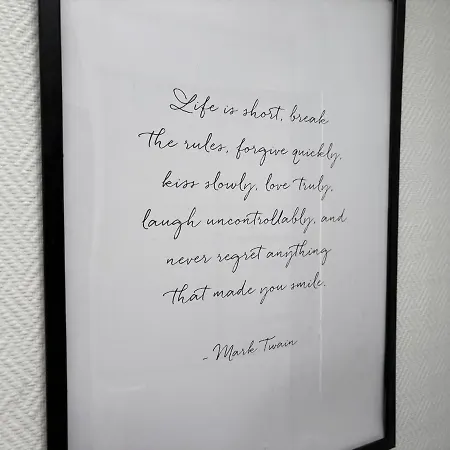 Life is short, break
the rules, forgive quickly,
kiss slowly, love truly,
laugh uncontrollably, and
never regret anything
that made you smile.
- Mark Twain